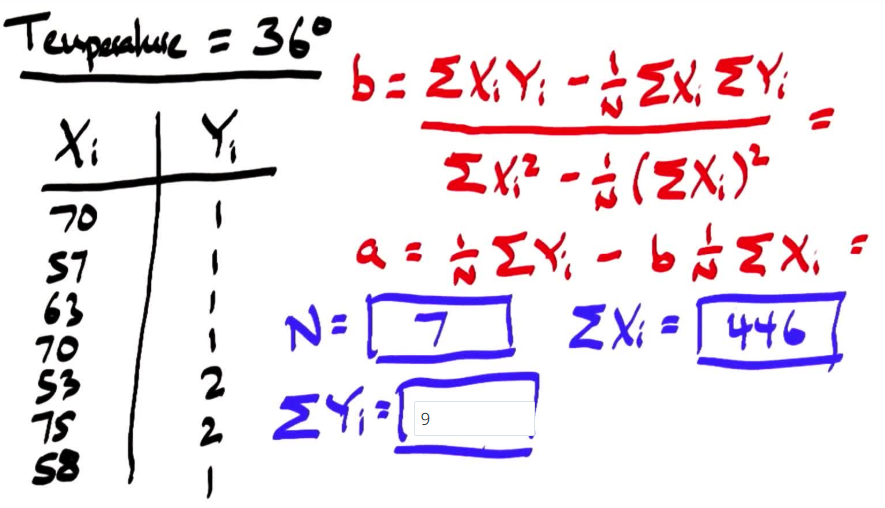 Temperature = 36°
Xi Yi
70 1
57 1
63 1
70 1
53 2
75 2
58 1
b = ΣXiYi - 1/N ΣXi ΣYi / ΣXi² - 1/N (ΣXi)² =
a = 1/N ΣYi - b 1/N ΣXi =
N = 7 ΣXi = 446
ΣYi = 9